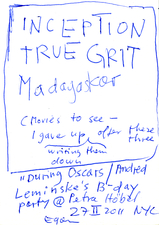 INCEPTION
TRUE GRIT
Madagascar
(Movies to see –
I gave up after these
writing them three
down
"During Oscars / Andred
Leminske's B-day
party @ Petra Höbel
27 II 2011 NYC